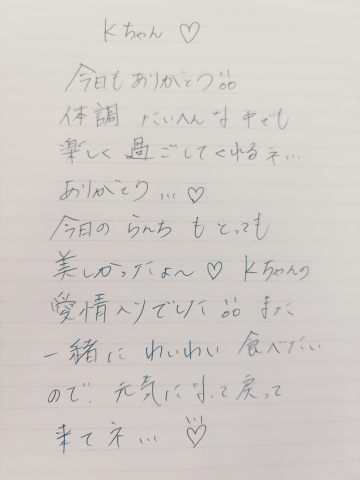 Kちゃん ♡
今日もありがとう
体調 たいへんな中でも
楽しく過ごしてくれるネ…
ありがとう…♡
今日の らんち もとっても
美しかったよ〜♡ Kちゃんの
愛情入りでした また
一緒に わいわい 食べたい
ので、元気になって戻って
来てネ… ♡